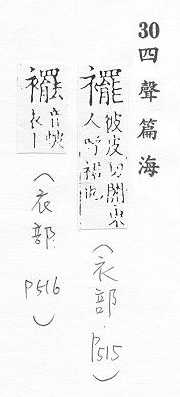 30四聲篇海
襬彼皮切關東
人呼裙也
(衣部 P515)
音
衣
(衣部 P516)